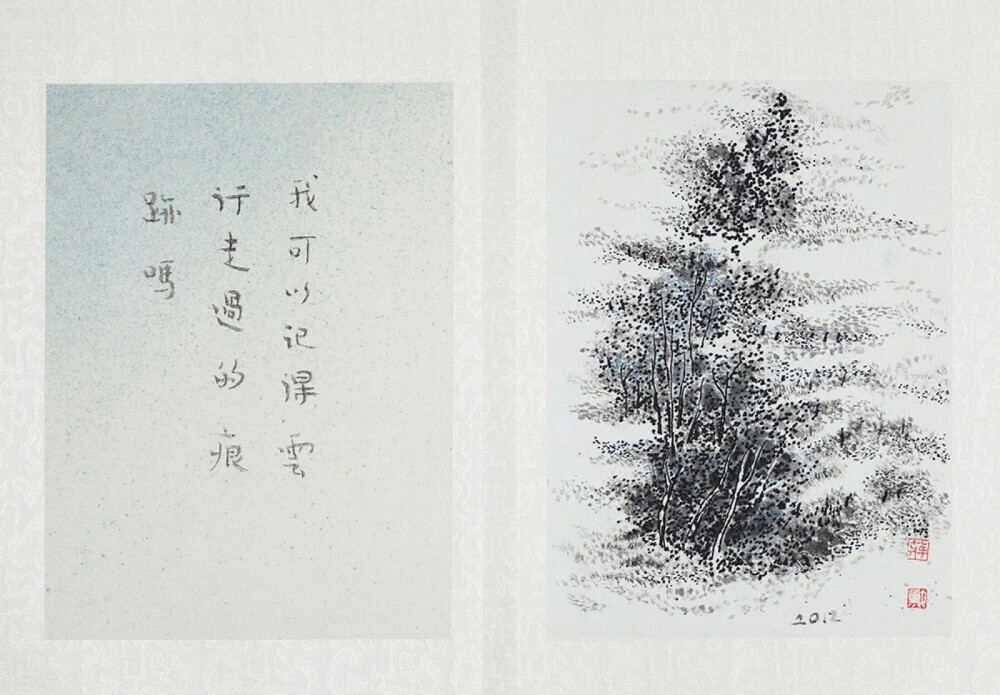 我可以记得雲
行走過的痕
跡嗎
2012